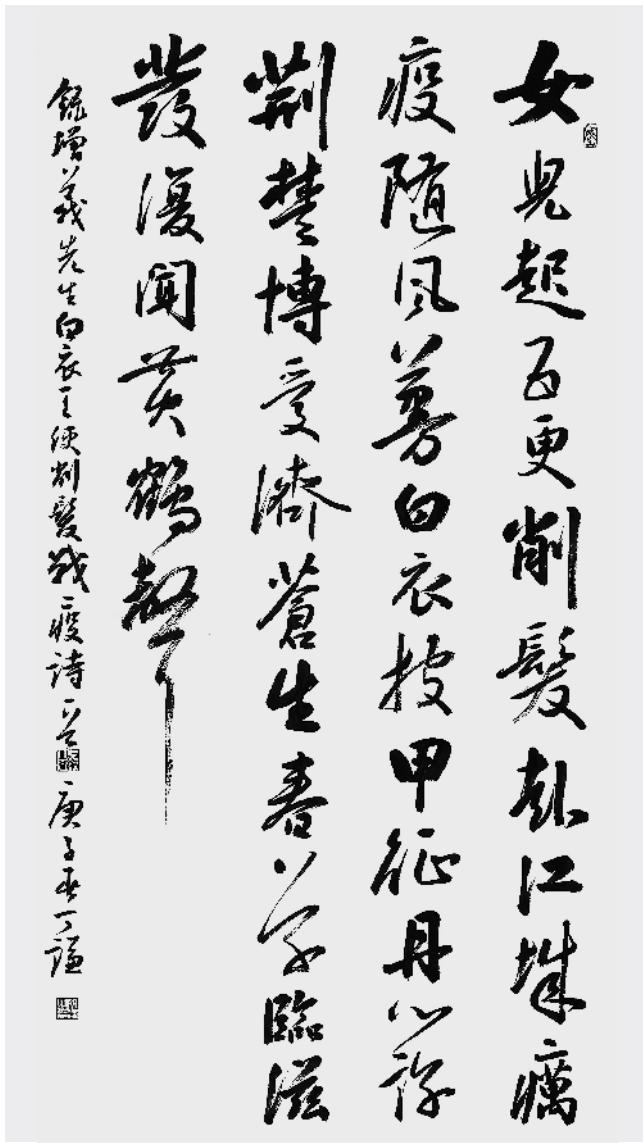 女兒起五更削髮赴江城癘
疫隨風蔓白衣披甲征丹心許
荊楚博愛濟蒼生春臨滋
發復聞黃鶴聲
錄增義先生白衣天使削髮戰疫詩一首 庚子春丁謙